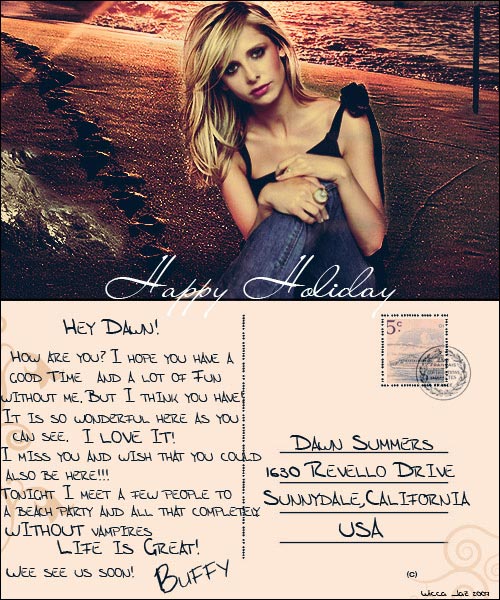 Happy Holiday
Hey Dawn!
How are you? I hope you have a
good time and a lot of fun
without me. But I think you have!
It is so wonderful here as you
can see. I LOVE IT!
I miss you and wish that you could
also be here!!!
Tonight I meet a few people to
a beach party and all that completely
WITHOUT vampires
Life Is Great!
Wee see us soon! Buffy
5c
Dawn Summers
1630 Revello Drive
Sunnydale, California
USA
(c)
Wicca_Jaz 2007